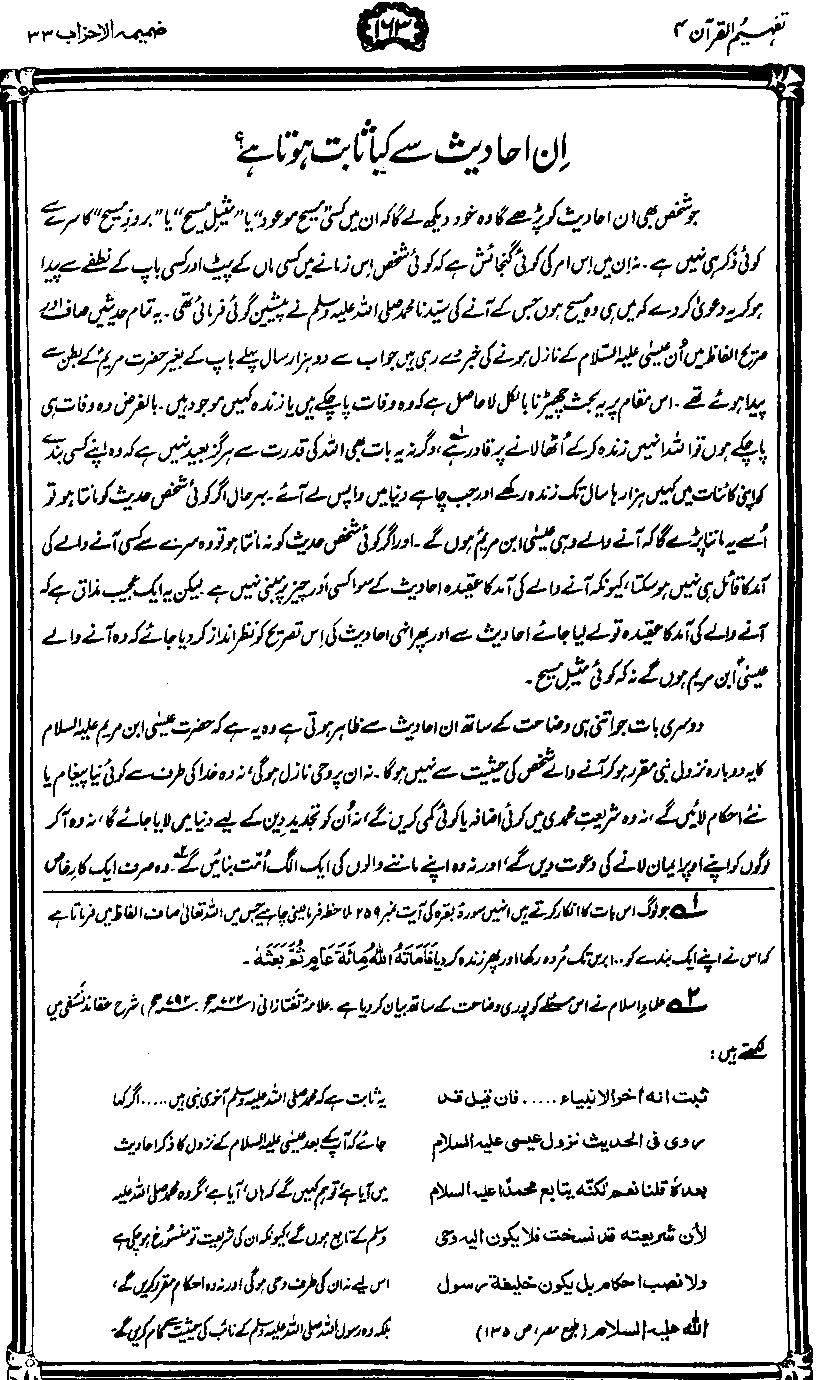 تفہیم القرآن ۴
۱۶۳
ضمیمہ الاحزاب ۳۳
اِن احادیث سے کیا ثابت ہوتا ہے؟
جو شخص بھی ان احادیث کو پڑھے گا وہ خود دیکھ لے گا کہ ان میں کسی "مسیح موعود" یا "مثیلِ مسیح" یا "بروزِ مسیح" کا سرے سے
کوئی ذکر ہی نہیں ہے۔ نہ ان میں اِس امر کی کوئی گنجائش ہے کہ کوئی شخص اِس زمانے میں کسی ماں کے پیٹ اور کسی باپ کے نطفے سے پیدا
ہو کر یہ دعویٰ کر دے کہ میں ہی وہ مسیح ہوں جس کے آنے کی سیّدنا محمد صلی اللہ علیہ وسلم نے پیشین گوئی فرمائی تھی۔ یہ تمام حدیثیں صاف اور
صریح الفاظ میں اُن عیسیٰ علیہ السّلام کے نازل ہونے کی خبر دے رہی ہیں جو اب سے دو ہزار سال پہلے باپ کے بغیر حضرت مریمؑ کے بطن سے
پیدا ہوئے تھے۔ اس مقام پر یہ بحث چھیڑنا بالکل لا حاصل ہے کہ وہ وفات پا چکے ہیں یا زندہ کہیں موجود ہیں۔ بالفرض وہ وفات ہی
پا چکے ہوں تو اللہ انہیں زندہ کر کے اُٹھا لانے پر قادر ہے،۱ وگرنہ یہ بات بھی اللہ کی قدرت سے ہرگز بعید نہیں ہے کہ وہ اپنے کسی بندے
کو اپنی کائنات میں کہیں ہزارہا سال تک زندہ رکھے اور جب چاہے دنیا میں واپس لے آئے۔ بہر حال اگر کوئی شخص حدیث کو مانتا ہو تو
اُسے یہ ماننا پڑے گا کہ آنے والے وہی عیسیٰ ابن مریمؑ ہوں گے۔ اور اگر کوئی شخص حدیث کو نہ مانتا ہو تو وہ سرے سے کسی آنے والے کی
آمد کا قائل ہی نہیں ہو سکتا، کیونکہ آنے والے کی آمد کا عقیدہ احادیث کے سوا کسی اَور چیز پر مبنی نہیں ہے لیکن یہ ایک عجیب مذاق ہے کہ
آنے والے کی آمد کا عقیدہ تو لے لیا جائے احادیث سے اور پھر انہی احادیث کی اِس تصریح کو نظر انداز کر دیا جائے کہ وہ آنے والے
عیسیٰؑ ابن مریم ہوں گے نہ کہ کوئی مثیلِ مسیح۔
دوسری بات جو اتنی ہی وضاحت کے ساتھ ان احادیث سے ظاہر ہوتی ہے وہ یہ ہے کہ حضرت عیسیٰ ابن مریم علیہ السلام
کا یہ دوبارہ نزول نبی مقرر ہو کر آنے والے شخص کی حیثیت سے نہیں ہو گا۔ نہ ان پر وحی نازل ہوگی، نہ وہ خدا کی طرف سے کوئی نیا پیغام یا
نئے احکام لائیں گے، نہ وہ شریعتِ محمدی میں کوئی اضافہ یا کوئی کمی کریں گے، نہ اُن کو تجدیدِ دین کے لیے دنیا میں لایا جائے گا، نہ وہ آ کر
لوگوں کو اپنے اوپر ایمان لانے کی دعوت دیں گے، اور نہ وہ اپنے ماننے والوں کی ایک الگ اُمّت بنائیں گے۔۲ وہ صرف ایک کارِ خاص
۱ جو لوگ اس بات کا انکار کرتے ہیں انہیں سورۂ بقرہ کی آیت نمبر ۲۵۹ ملاحظہ فرما لینی چاہیے جس میں اللہ تعالیٰ صاف الفاظ میں فرماتا ہے
کہ اس نے اپنے ایک بندے کو ۱۰۰ برس تک مُردہ رکھا اور پھر زندہ کر دیا فَاَمَاتَهُ اللهُ مِائَةَ عَامٍ ثُمَّ بَعَثَهٗ۔
۲ علماءِ اسلام نے اس مسئلے کو پوری وضاحت کے ساتھ بیان کر دیا ہے۔ علامہ تَفتازانی (۷۲۲ھ ۔ ۷۹۲ھ) شرح عقائد نَسَفی میں
لکھتے ہیں:
ثبت انه اٰخر الانبیاء ..... فان قیل قد
روی فی الحدیث نزول عیسی علیه السلام
بعدہٗ قلنا نعم لکنّه یتابع محمدًا علیه السلام
لأن شریعته قد نسخت فلا یکون الیه وحی
ولا نصب احکام بل یکون خلیفة رسول
اللہ علیه السلام (طبع مصر، ص ۱۳۵)
یہ ثابت ہے کہ محمد صلی اللہ علیہ وسلم آخری نبی ہیں ..... اگر کہا
جائے کہ آپ کے بعد عیسیٰ علیہ السلام کے نزول کا ذکر احادیث
میں آیا ہے، تو ہم کہیں گے کہ ہاں، آیا ہے، مگر وہ محمد صلی اللہ علیہ
وسلم کے تابع ہوں گے، کیونکہ ان کی شریعت تو منسوخ ہو چکی ہے
اس لیے نہ ان کی طرف وحی ہوگی اور نہ وہ احکام مقرر کریں گے،
بلکہ وہ رسول اللہ صلی اللہ علیہ وسلم کے نائب کی حیثیت سے کام کریں گے۔